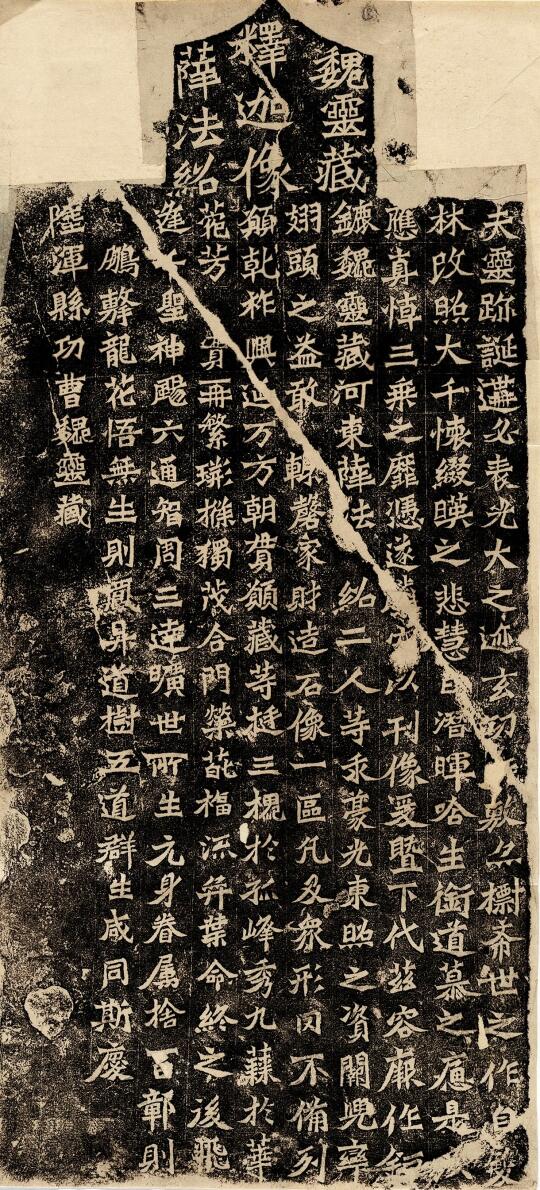 魏靈藏
釋迦像
薛法紹
夫靈跡誕遘必表光大之迹玄功敷亦標希世之作自雙
林改照大千懷綴暎之悲慧日潛暉唅生銜道慕之應是以
應真悼三乘之靡憑遂騰空以刊像爰暨下代茲容厥作鉅
鏕魏靈藏河東薛法紹二人等求豪光東照之資闕兜率
翅頭之益敢輒罄家財造石像一區凡及眾形罔不備列
願乾祚興延万方朝貫願藏等挺三槐於孤峰秀九蕀於華
菀芳實再繁荊條獨茂合門榮葩福流奕葉命終之後飛
逢千聖神颺六通智周三達曠世所生元身眷屬捨百鄣則
鵬擊龍花悟無生則鳳昇道樹五道群生咸同斯慶
陸渾縣功曹魏靈藏